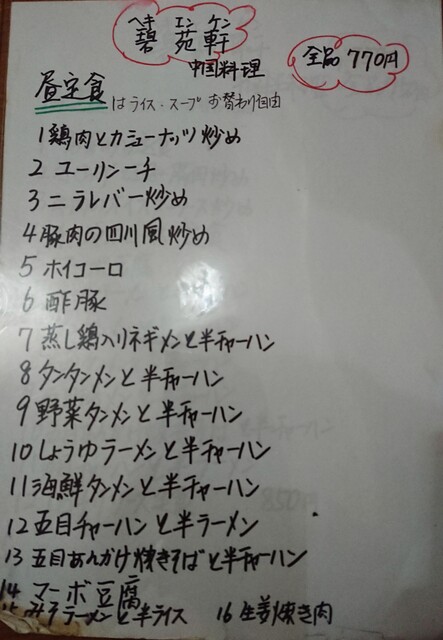 ヘキ エン ケン
碧 苑 軒
中国料理
全品 770円
昼定食 はライス・スープお替わり自由
1 鶏肉とカシューナッツ炒め
2 ユーリンーチ
3 ニラレバー炒め
4 豚肉の四川風炒め
5 ホイコーロ
6 酢豚
7 蒸し鶏入りネギメンと半チャーハン
8 タンタンメンと半チャーハン
9 野菜タンメンと半チャーハン
10 しょうゆラーメンと半チャーハン
11 海鮮タンメンと半チャーハン
12 五目チャーハンと半ラーメン
13 五目あんかけ焼きそばと半チャーハン
14 マーボ豆腐
15 みそラーメンと半ライス 16 生姜焼き肉
850円